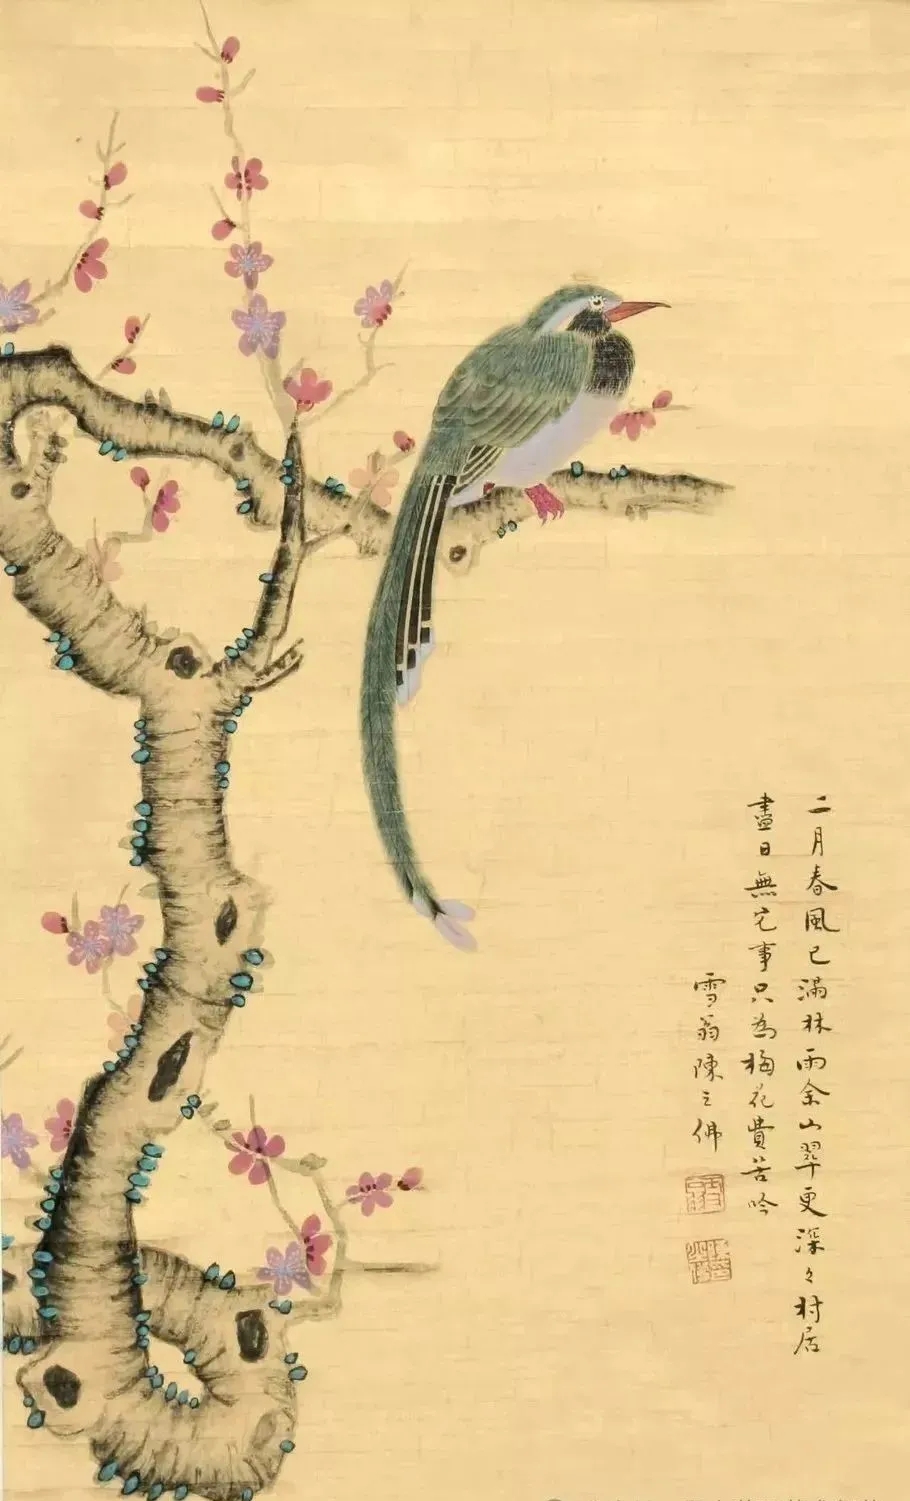 二月春風已滿林雨余山翠更深々村居
盡日無它事只為梅花費苦吟
雪翁陳之佛